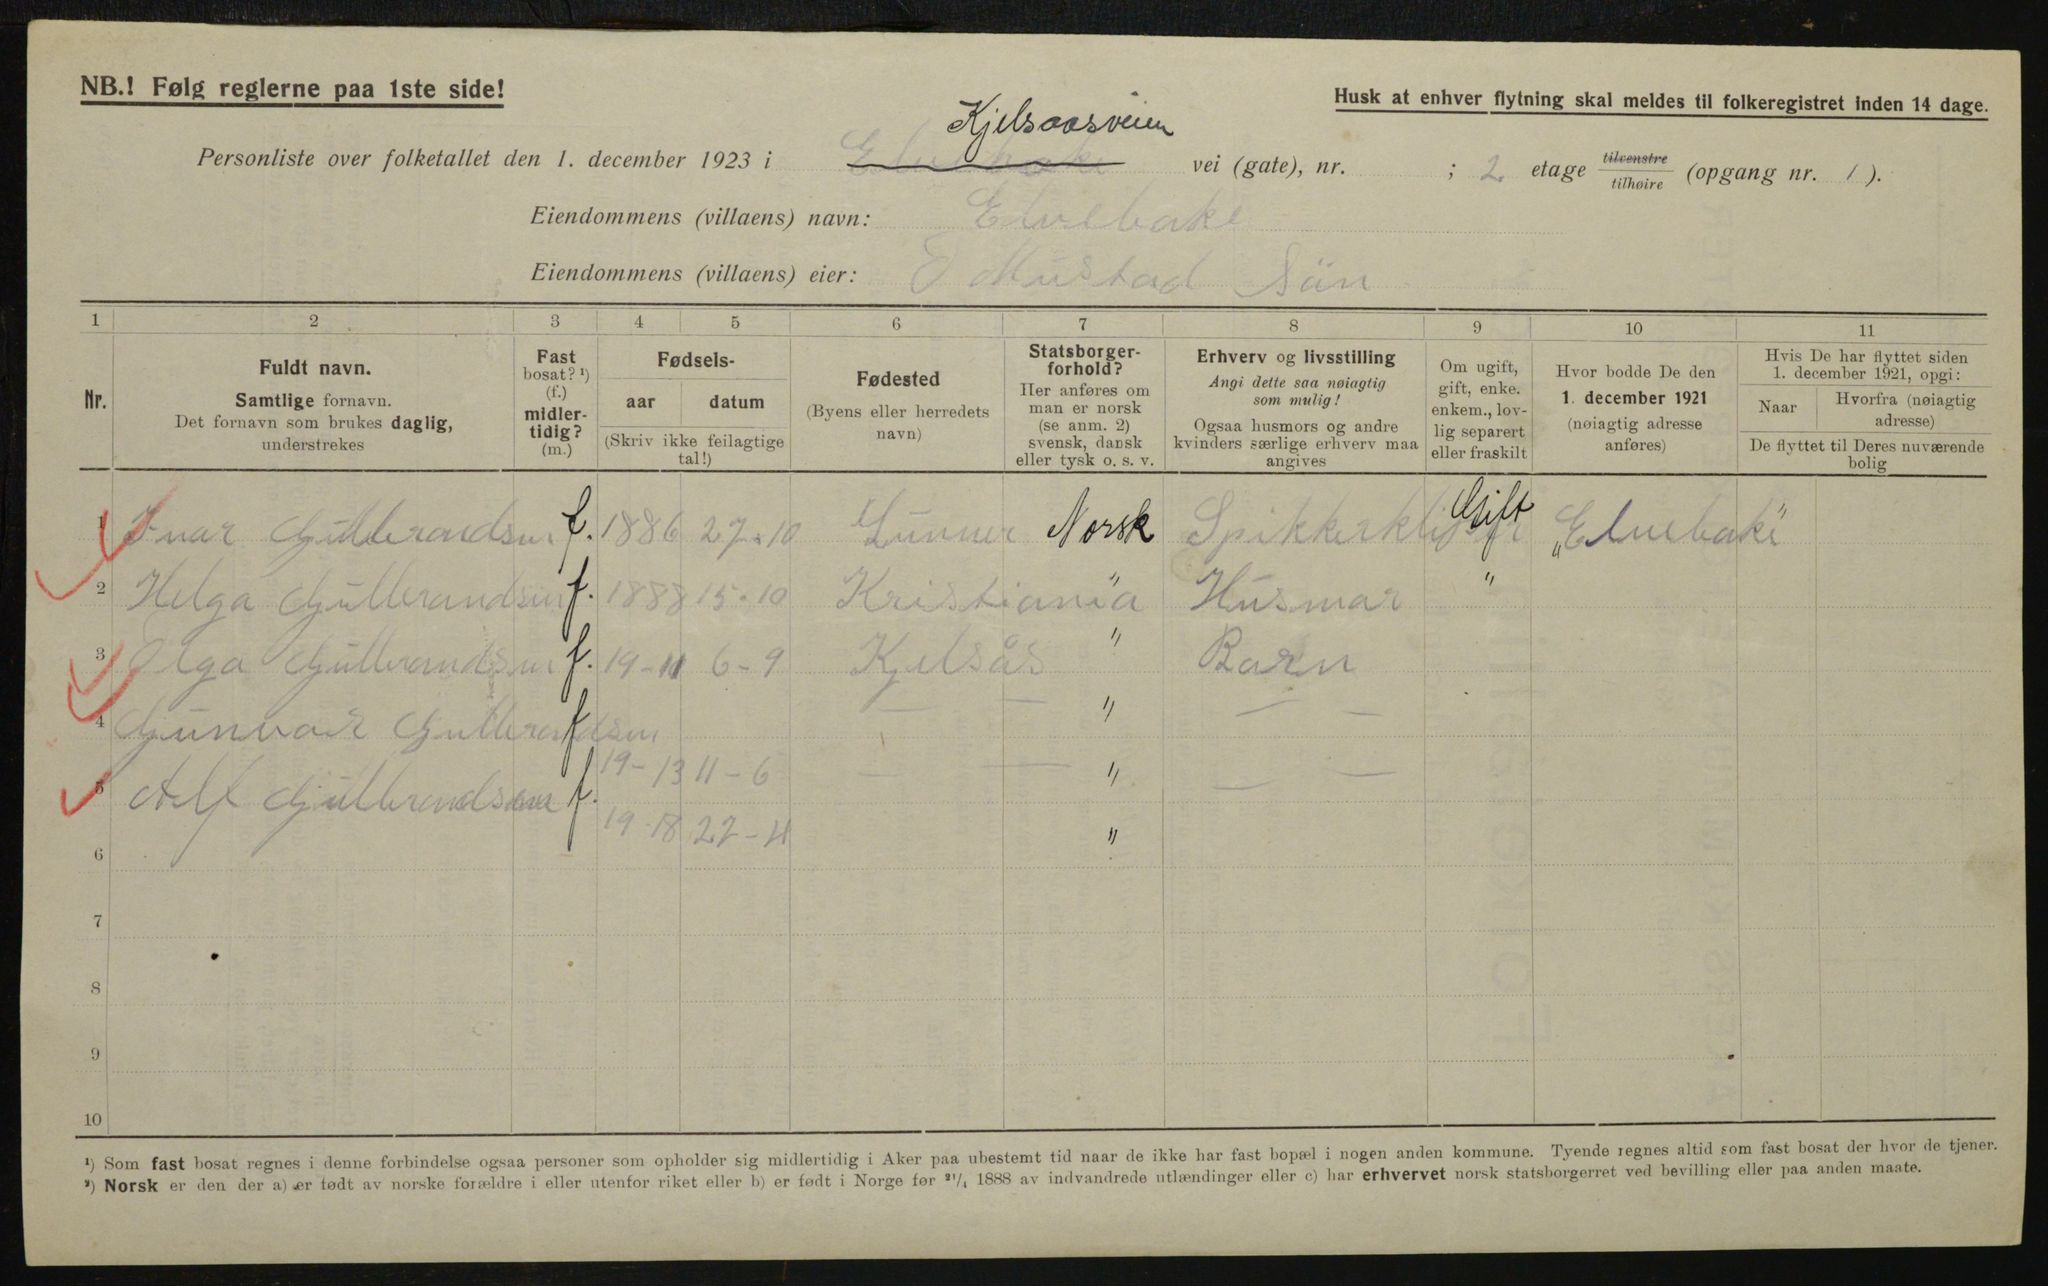 NB.! Følg reglerne paa 1ste side!
Husk at enhver flytning skal meldes til folkeregistret inden 14 dage.
Kjelsaasveien
Personliste over folketallet den 1. december 1923 i Elvebake vei (gate), nr. ; 2 etage tilvenstre tilhøire (opgang nr. 1).
Eiendommens (villaens) navn: Elvebake
Eiendommens (villaens) eier: O Mustad Sön
1 2 3 4 5 6 7 8 9 10 11
Nr.
Fuldt navn.
Samtlige fornavn.
Det fornavn som brukes daglig,
understrekes
Fast
bosat? ¹)
(f.)
midler-
tidig?
(m.)
Fødsels-
aar datum
(Skriv ikke feilagtige
tal!)
Fødested
(Byens eller herredets
navn)
Statsborger-
forhold?
Her anføres om
man er norsk
(se anm. 2)
svensk, dansk
eller tysk o. s. v.
Erhverv og livsstilling
Angi dette saa nøiagtig
som mulig!
Ogsaa husmors og andre
kvinders særlige erhverv maa
angives
Om ugift,
gift, enke.
enkem., lov-
lig separert
eller fraskilt
Hvor bodde De den
1. december 1921
(nøiagtig adresse
anføres)
Hvis De har flyttet siden
1. december 1921, opgi:
Naar
Hvorfra (nøiagtig
adresse)
De flyttet til Deres nuværende
bolig
1 Ivar Gullbrandsen f. 1886 27.10 Lunner Norsk Gift „Elvebake"
2 Helga Gullbrandsen f. 1888 15-10 Kristiania " Husmor "
3 Olga Gullbrandsen f. 19-11 6-9 Kjelsås " Barn
4 Gunvor Gullbrandsen f — — " — —
19-13 11-6 — — " — —
5 Alf Gullbrandsen f.
19-18 22-4 "
6
7
8
9
10
¹) Som fast bosat regnes i denne forbindelse ogsaa personer som opholder sig midlertidig i Aker paa ubestemt tid naar de ikke har fast bopæl i nogen anden kommune. Tyende regnes altid som fast bosat der hvor de tjener.
²) Norsk er den der a) er født av norske forældre i eller utenfor riket eller b) er født i Norge før ²¹/₄ 1888 av indvandrede utlændinger eller c) har erhvervet norsk statsborgerret ved bevilling eller paa anden maate.